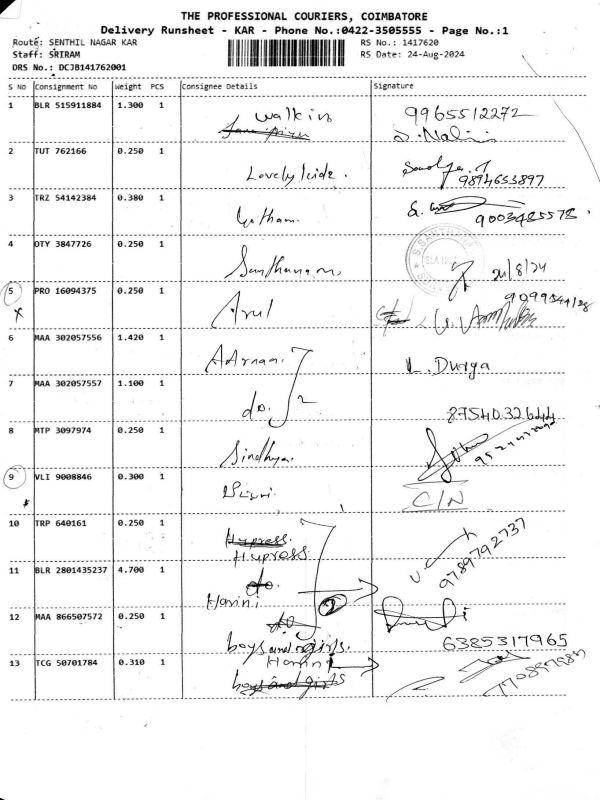 THE PROFESSIONAL COURIERS, COIMBATORE
Delivery Runsheet - KAR - Phone No.:0422-3505555 - Page No.:1
Route: SENTHIL NAGAR KAR RS No.: 1417620
Staff: SRIRAM RS Date: 24-Aug-2024
DRS No.: DCJB141762001
S No Consignment No Weight PCS Consignee Details Signature
1 BLR 515911884 1.300 1 walkin 9965512272
S. Nalini
2 TUT 762166 0.250 1 Lovely kids.
9894653897
3 TRZ 54142384 0.380 1 Gotham.
9003485578
4 OTY 3847726 0.250 1 Santhanam 24/8/24
5 PRO 16094375 0.250 1 Arul
6 MAA 302057556 1.420 1 AArnav L. Durga
7 MAA 302057557 1.100 1 do. 8754032644
8 MTP 3097974 0.250 1 Sindhya.
9 VLI 9008846 0.300 1 C/N
10 TRP 640161 0.250 1 Hupress.
Hupress 9789792737
11 BLR 2801435237 4.700 1 do.
Harini
12 MAA 866507572 0.250 1 do
boys and girls. 6385317965
13 TCG 50701784 0.310 1 Harini
boys and girls